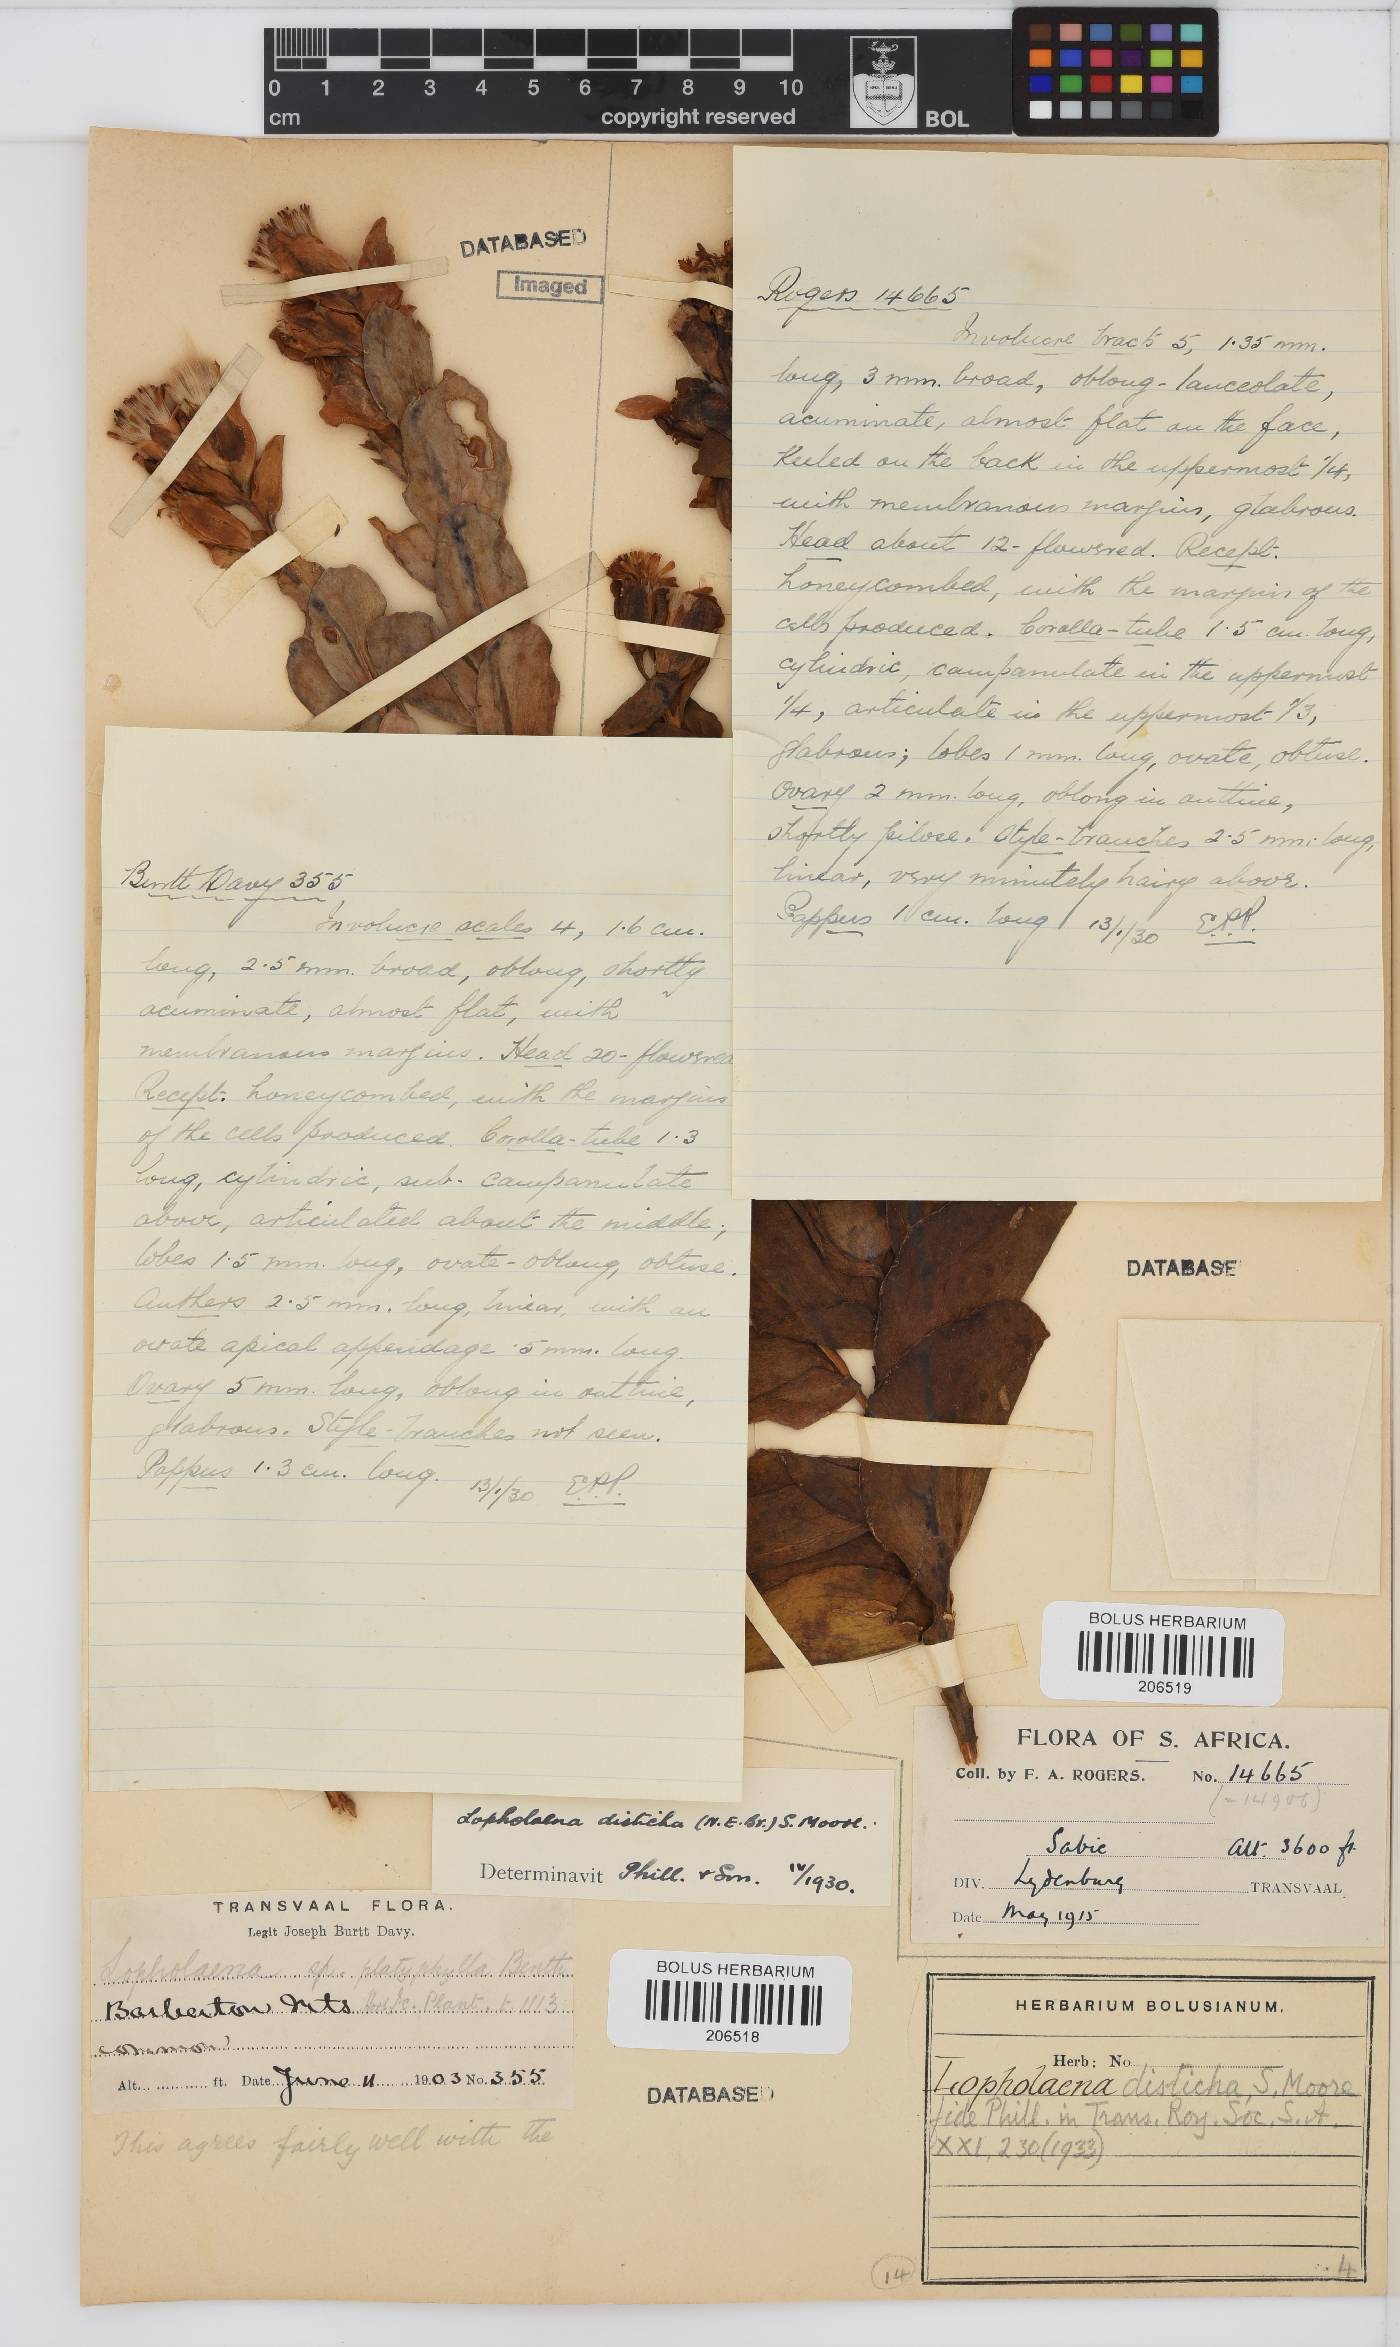 0 1 2 3 4 5 6 7 8 9 10
cm
copyright reserved
BOL
DATABASED
Imaged
Rogers 14665
Involucre bracts 5, 1·35 mm.
long, 3 mm. broad, oblong-lanceolate,
acuminate, almost flat on the face,
keeled on the back in the uppermost 1/4,
with membranous margins, glabrous.
Head about 12-flowered. Recept.
honeycombed, with the margins of the
cells produced. Corolla-tube 1·5 cm. long,
cylindric, campanulate in the uppermost
1/4, articulate in the uppermost 1/3,
glabrous; lobes 1 mm. long, ovate, obtuse.
Ovary 2 mm. long, oblong in outline,
shortly pilose. Style-branches 2·5 mm. long,
linear, very minutely hairy above.
Pappus 1 cm. long 13/1/30 E.P.P.
Burtt Davy 355
Involucre scales 4, 1·6 cm.
long, 2·5 mm. broad, oblong, shortly
acuminate, almost flat, with
membranous margins. Head 20-flowered
Recept. honeycombed, with the margins
of the cells produced. Corolla-tube 1·3
long, cylindric, sub-campanulate
above, articulated about the middle;
lobes 1·5 mm. long, ovate-oblong, obtuse.
Anthers 2·5 mm. long, linear, with an
ovate apical appendage ·5 mm. long.
Ovary 5 mm. long, oblong in outline,
glabrous. Style-branches not seen.
Pappus 1·3 cm. long. 13/1/30 E.P.P.
DATABASE
BOLUS HERBARIUM
206519
FLORA OF S. AFRICA.
Coll. by F. A. ROGERS. No. 14665
(=14908)
Sabie Alt. 3600 ft.
DIV. Lydenburg TRANSVAAL
Date May 1915
Lopholaena disticha (N.E.Br.) S. Moore.
Determinavit Phill. & Sm. IV/1930.
TRANSVAAL FLORA.
Legit Joseph Burtt Davy.
Lopholaena sp. platyphylla Benth
Barberton Mts Hook. Plant. t. 1113
common
Alt. ft. Date June 11 1903 No. 355
This agrees fairly well with the
BOLUS HERBARIUM
206518
DATABASED
HERBARIUM BOLUSIANUM.
Herb: No
Lopholaena disticha, S. Moore
fide Phill. in Trans. Roy. Soc. S. A.
XXI, 230 (1933)
14
4